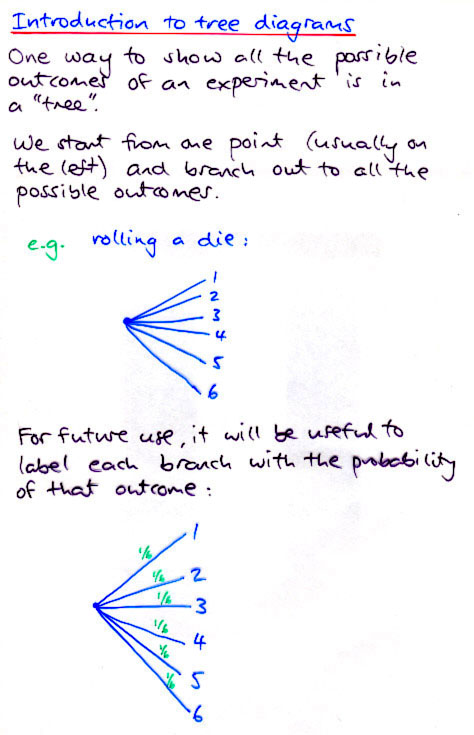 Introduction to tree diagrams
One way to show all the possible
outcomes of an experiment is in
a "tree".
We start from one point (usually on
the left) and branch out to all the
possible outcomes.
e.g. rolling a die:
1
2
3
4
5
6
For future use, it will be useful to
label each branch with the probability
of that outcome:
1/6 1
1/6 2
1/6 3
1/6 4
1/6 5
1/6 6